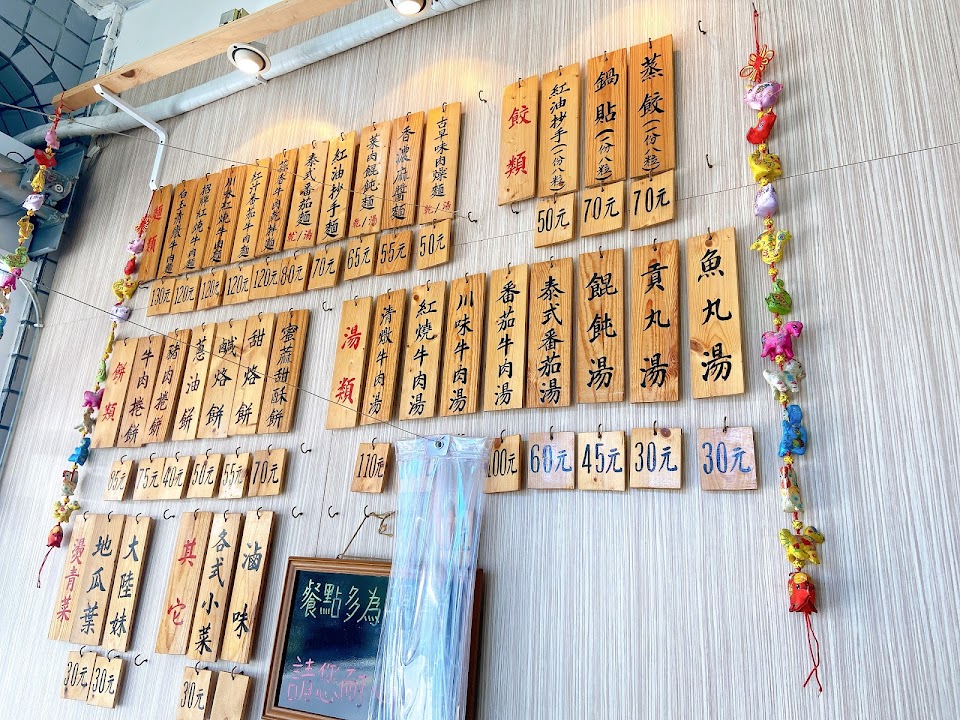 麵類
白玉清燉牛肉麵
招牌紅燒牛肉麵
川味紅燒牛肉麵
紅汁番茄牛肉麵
泰式番茄麵
乾/湯
紅油抄手麵
菜肉餛飩麵
乾/湯
香濃麻醬麵
古早味肉燥麵
乾/湯
130元
120元
120元
120元
120元
80元
70元
65元
55元
50元
餃類
紅油抄手(一份八粒)
鍋貼(一份八粒)
蒸餃(一份八粒)
50元
70元
70元
餅類
牛肉捲餅
豬肉捲餅
蔥油餅
鹹烙餅
甜烙餅
蜜蔴甜酥餅
85元
75元
40元
50元
55元
70元
湯類
清燉牛肉湯
紅燒牛肉湯
川味牛肉湯
番茄牛肉湯
泰式番茄湯
餛飩湯
貢丸湯
魚丸湯
110元
100元
60元
45元
30元
30元
燙青菜
地瓜葉
大陸妹
30元
30元
其它
各式小菜
滷味
30元
30元
餐點多為
請您